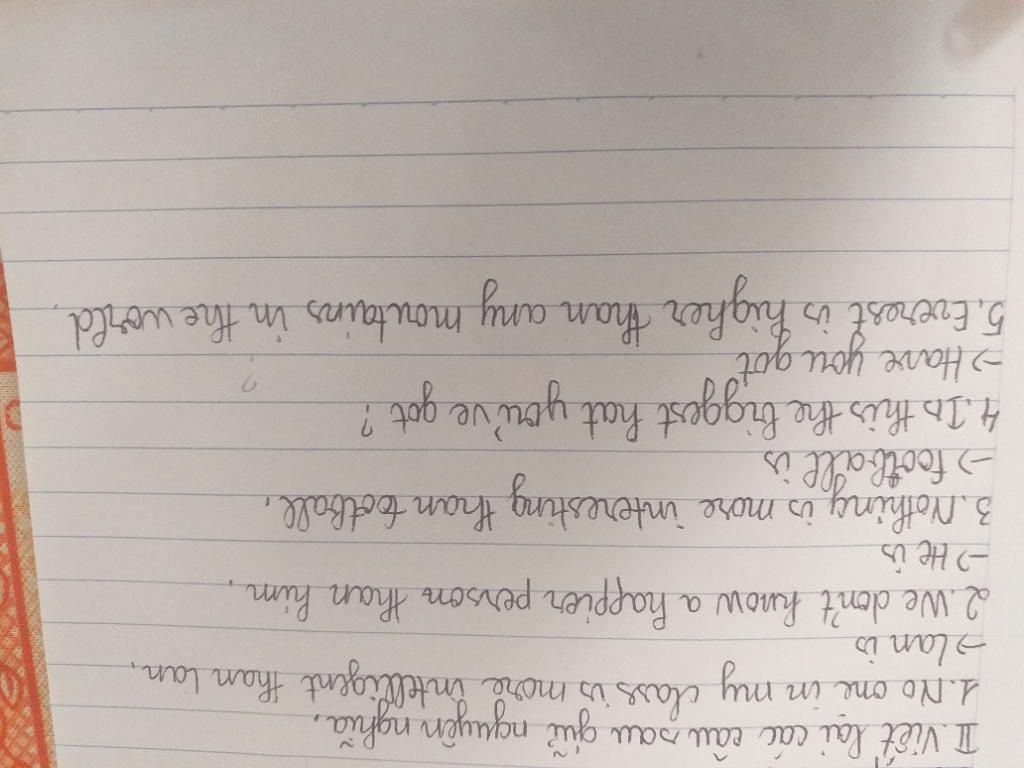 II. Viết lại các câu sau giữ nguyên nghĩa.
1. No one in my class is more intelligent than Lan.
→ Lan is
2. We don't know a happier person than him.
→ He is
3. Nothing is more interesting than football.
→ football is
4. Is this the biggest hat you've got?
→ Have you got ?
5. Everest is higher than any moutains in the world.